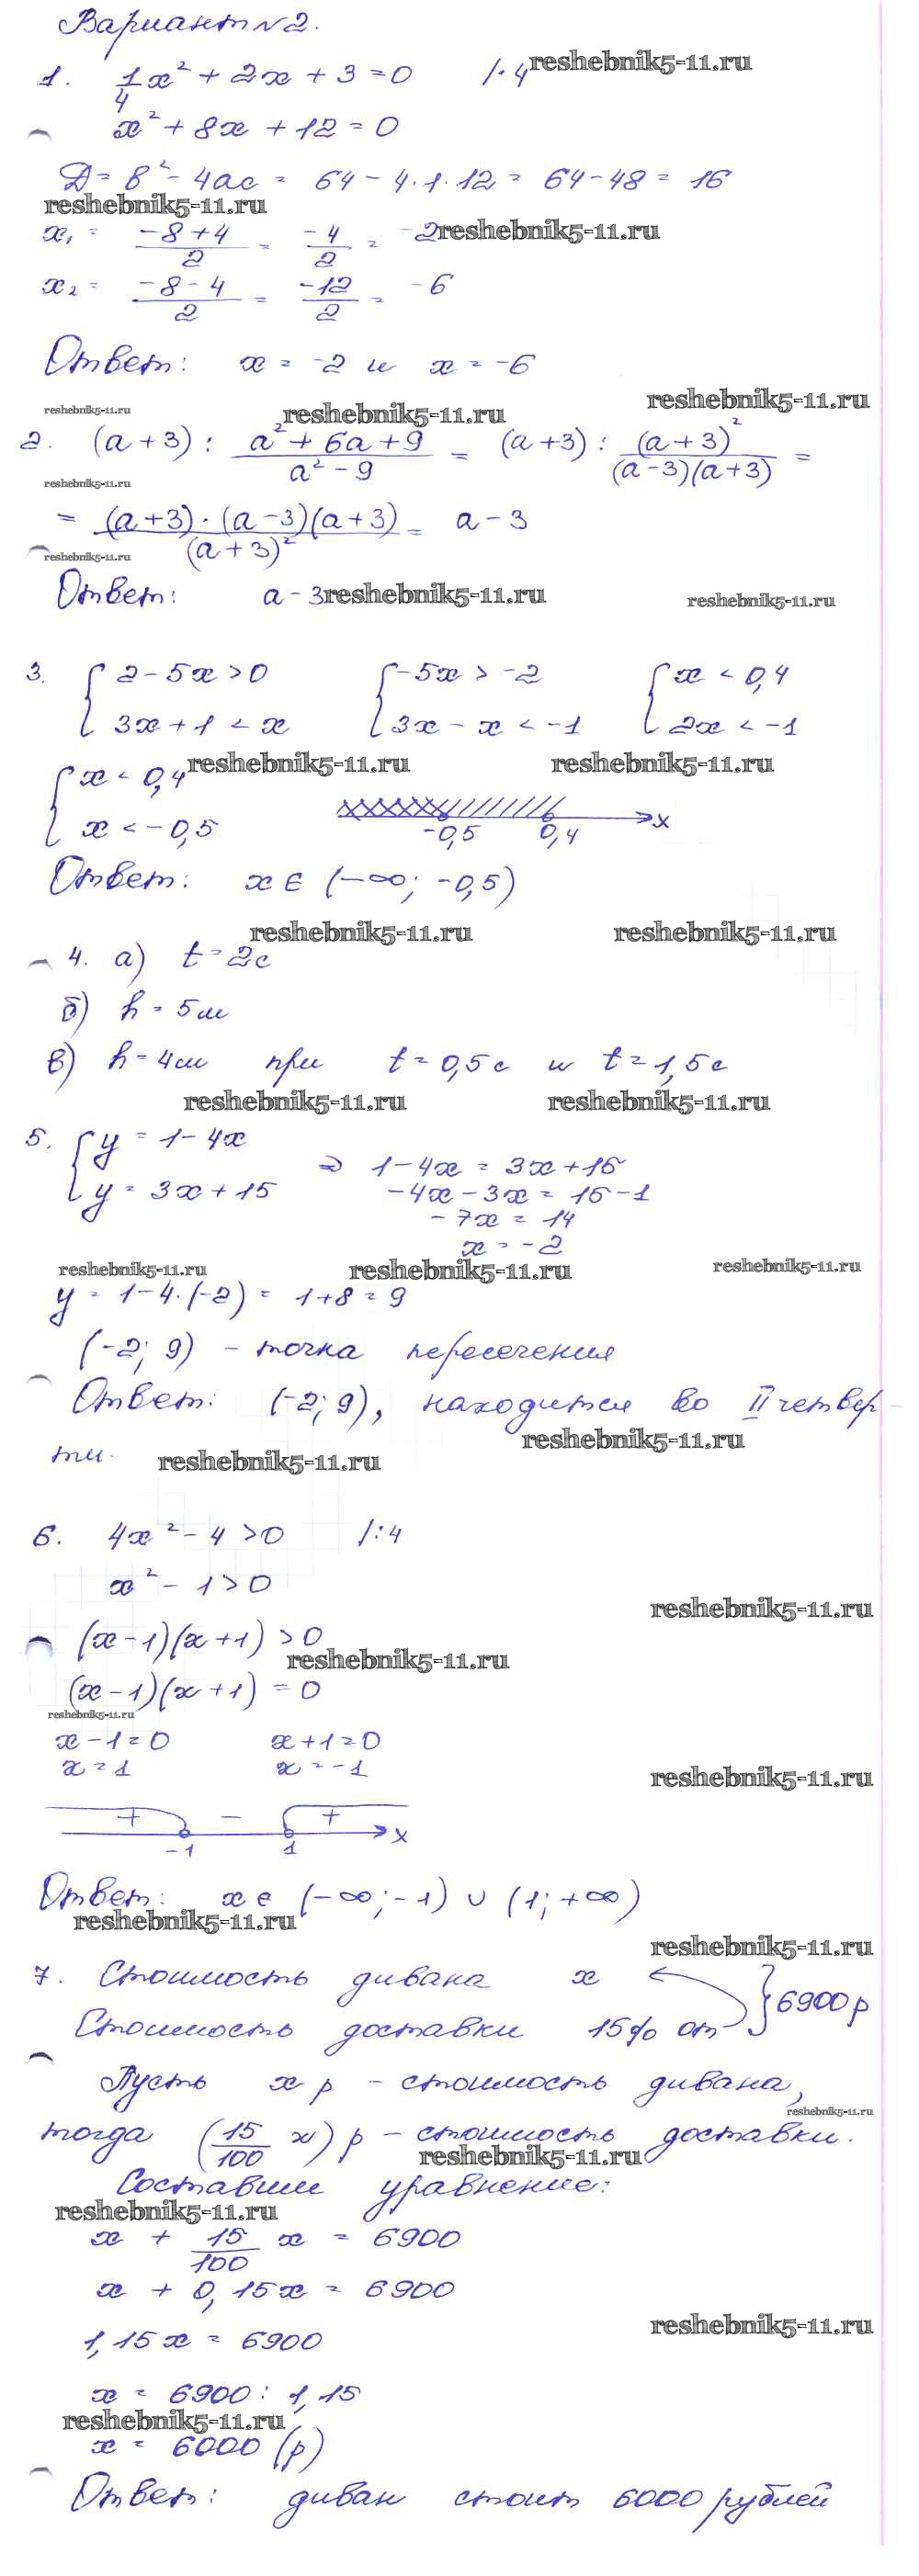 Вариант №2.
1. 1/4 x² + 2x + 3 = 0 /·4 reshebnik5-11.ru
x² + 8x + 12 = 0
D = b² - 4ac = 64 - 4·1·12 = 64 - 48 = 16
reshebnik5-11.ru
x₁ = (-8+4)/2 = -4/2 = -2 reshebnik5-11.ru
x₂ = (-8-4)/2 = -12/2 = -6
Ответ: x = -2 и x = -6
reshebnik5-11.ru reshebnik5-11.ru reshebnik5-11.ru
2. (a+3) : (a²+6a+9)/(a²-9) = (a+3) : (a+3)²/((a-3)(a+3)) =
reshebnik5-11.ru
= ((a+3)·(a-3)(a+3))/(a+3)² = a-3
reshebnik5-11.ru
Ответ: a-3 reshebnik5-11.ru reshebnik5-11.ru
3. { 2-5x>0 { -5x>-2 { x<0,4
3x+1<x 3x-x<-1 2x<-1
{ x<0,4 reshebnik5-11.ru reshebnik5-11.ru
x<-0,5 -0,5 0,4 x
Ответ: x∈(-∞; -0,5)
reshebnik5-11.ru reshebnik5-11.ru
4. а) t = 2с
б) h = 5м
в) h = 4м при t = 0,5с и t = 1,5с
reshebnik5-11.ru reshebnik5-11.ru
5. { y = 1-4x
⇒ 1-4x = 3x+15
y = 3x+15 -4x-3x = 15-1
-7x = 14
x = -2
reshebnik5-11.ru reshebnik5-11.ru reshebnik5-11.ru
y = 1-4·(-2) = 1+8 = 9
(-2; 9) - точка пересечения
Ответ: (-2; 9), находится во II четвер-
reshebnik5-11.ru
ти. reshebnik5-11.ru
6. 4x² - 4 > 0 /:4
x² - 1 > 0
reshebnik5-11.ru
(x-1)(x+1) > 0
reshebnik5-11.ru
(x-1)(x+1) = 0
reshebnik5-11.ru
x-1=0 x+1=0
x=1 x=-1
reshebnik5-11.ru
+ - +
-1 1 x
Ответ: x∈(-∞; -1) ∪ (1; +∞)
reshebnik5-11.ru
reshebnik5-11.ru
7. Стоимость дивана x } 6900 р
Стоимость доставки 15% от
Пусть x р - стоимость дивана,
reshebnik5-11.ru
тогда (15/100 x) р - стоимость доставки.
reshebnik5-11.ru
Составим уравнение:
reshebnik5-11.ru
x + 15/100 x = 6900
x + 0,15x = 6900
reshebnik5-11.ru
1,15x = 6900
x = 6900 : 1,15
reshebnik5-11.ru
x = 6000 (р)
Ответ: диван стоит 6000 рублей